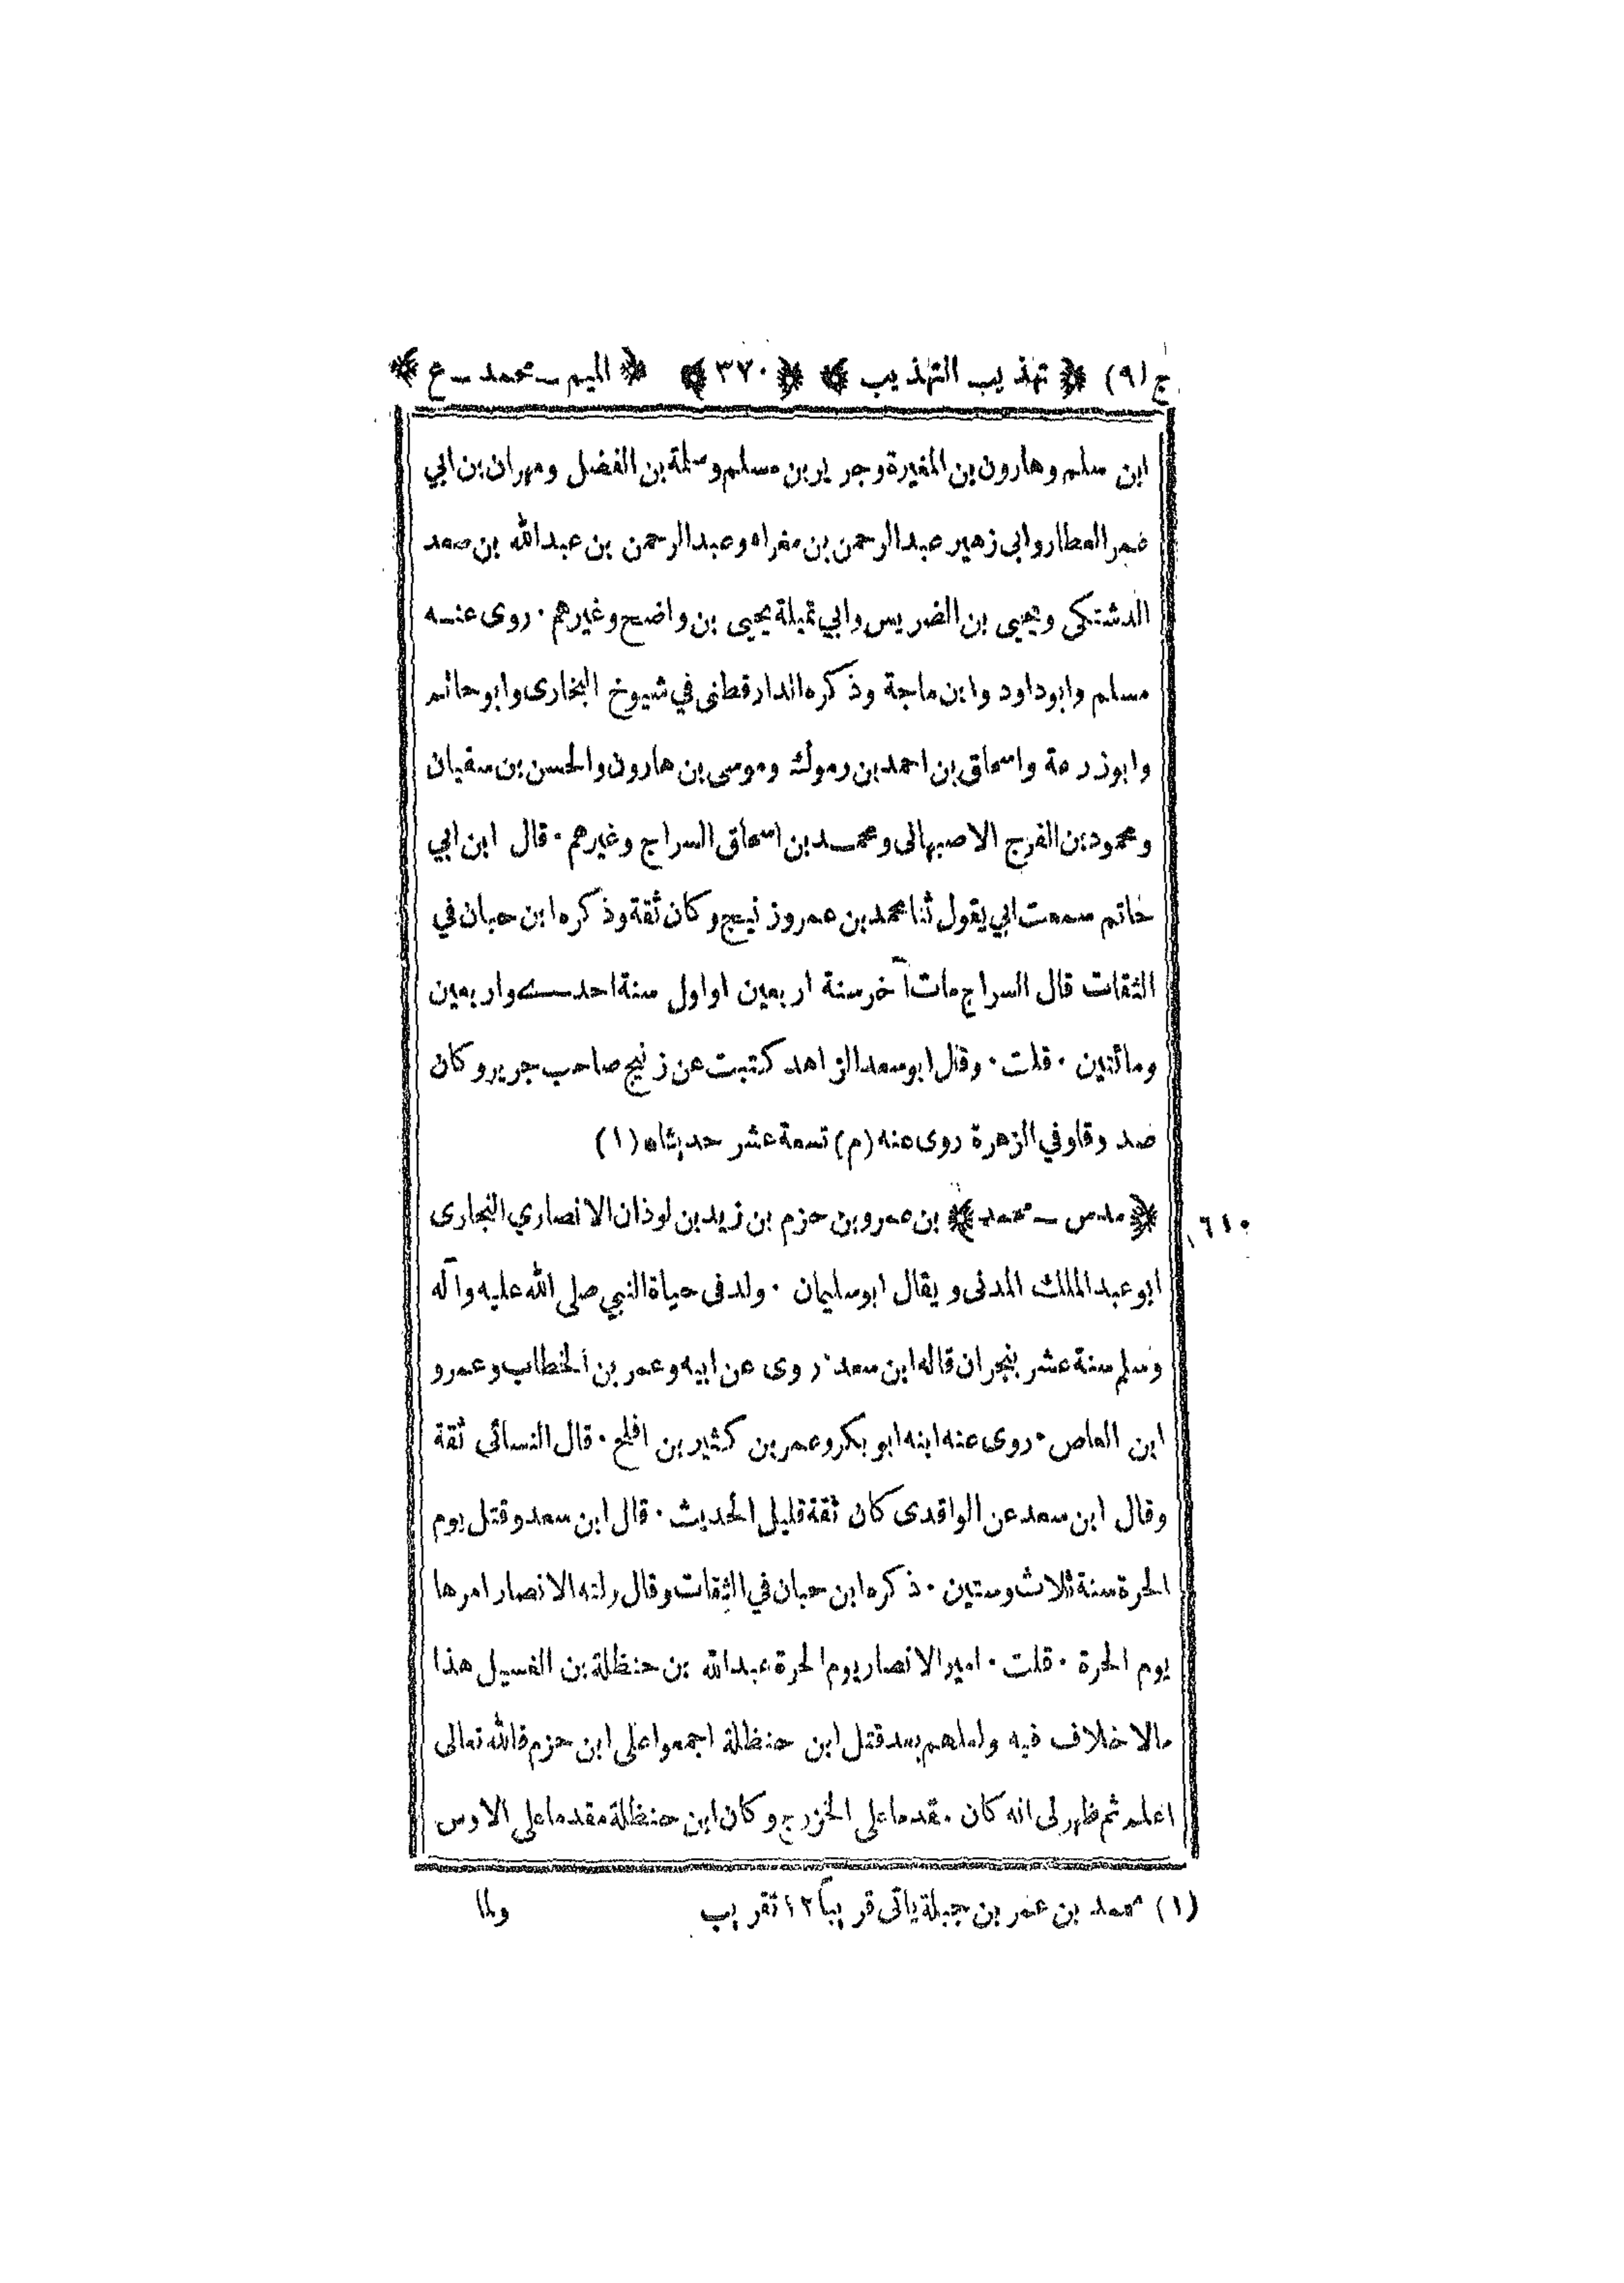 ج(٩) ﴿ تهذيب التهذيب ﴾ ﴿٣٧٠﴾ ﴿ الميم ـ محمد ـ ع ﴾
ابن سلم وهارون بن المغيرة وجرير بن مسلم وسلمة بن الفضل ومهران بن ابي
عمر العطار وابى زهير عبد الرحمن بن مغراء وعبد الرحمن بن عبد الله بن سعد
الدشتكى ويحيى بن الضريس وابي تميلة يحيى بن واضح وغيرهم ٠ روى عنه
مسلم وابو داود وابن ماجة وذكره الدارقطنى في شيوخ البخارى وابو حاتم
وابو زرعة واسحاق بن احمد بن زموله وموسى بن هارون والحسن بن سفيان
ومحمود بن الفرج الاصبهانى ومحمد بن اسحاق السراج وغيرهم ٠ قال ابن ابي
حاتم سمعت ابي يقول ثنا محمد بن عمرو زنيج وكان ثقة وذكره ابن حبان في
الثقات قال السراج مات آخر سنة اربعين او اول سنة احدى واربعين
ومائتين ٠ قلت ٠ وقال ابو سعد الزاهد كتبت عن زنيج صاحب جرير وكان
صدوقا وفي الزهرة روى عنه (م) تسعة عشر حديثا ه (١)
﴿ مدس ـ محمد ﴾ بن عمرو بن حزم بن زيد بن لوذان الانصاري النجارى
٦١٠
ابو عبد الملك المدنى ويقال ابو سليمان ٠ ولد فى حياة النبي صلى الله عليه وآله
وسلم سنة عشر بنجران قاله ابن سعد ٠ روى عن ابيه وعمر بن الخطاب وعمرو
ابن العاص ٠ روى عنه ابنه ابو بكر وعمر بن كثير بن افلح ٠ قال النسائي ثقة
وقال ابن سعد عن الواقدى كان ثقة قليل الحديث ٠ قال ابن سعد وقتل يوم
الحرة سنة ثلاث وستين ٠ ذكره ابن حبان في الثقات وقال ولته الانصار امرها
يوم الحرة ٠ قلت ٠ امير الانصار يوم الحرة عبد الله بن حنظلة بن الغسيل هذا
مالا خلاف فيه ولعلهم بعد قتل ابن حنظلة اجمعوا على ابن حزم فالله تعالى
اعلم ثم ظهر لى انه كان مقدما على الخزرج وكان ابن حنظلة مقدما على الاوس
(١) محمد بن عمر بن جبلة ياتى قريبا ١٢ تقريب
ولما